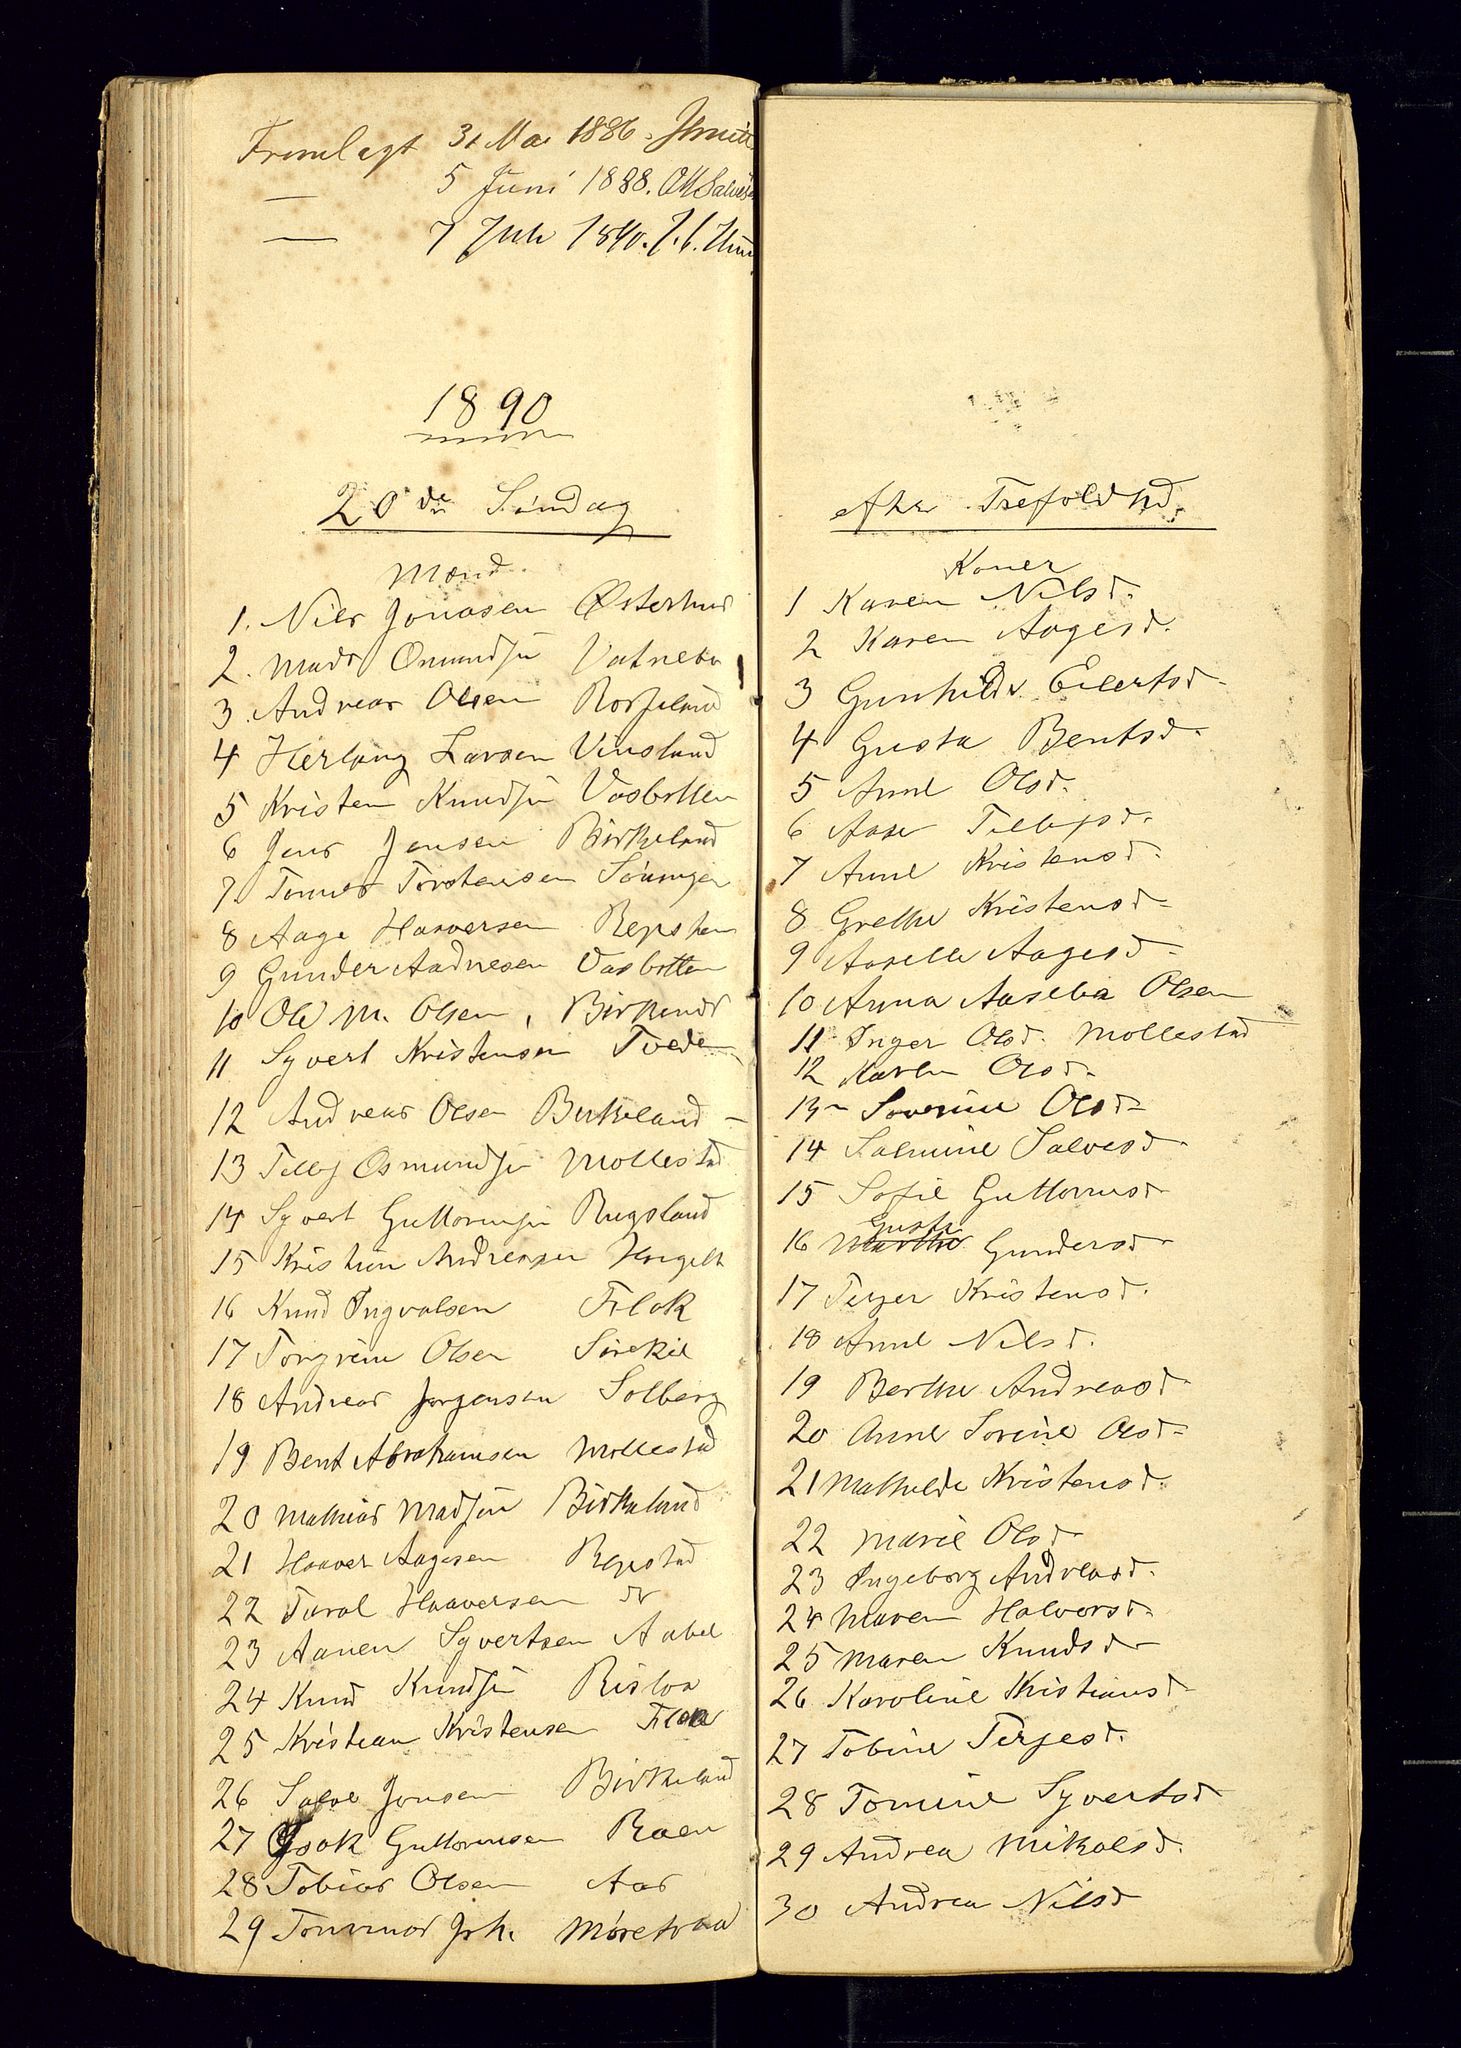 Fremlagt 31 Mai 1886. Smith
— 5 Juni 1888.
— 7 Juli 1890.
1890
20de Søndag
Mænd.
1. Niels Jonasen Østerhus
2. Mads Omundsen Vatnebo
3. Andreas Olsen Rosseland
4 Herlaug Larsen Vinsland
5 Kristen Knudsen Vasbotten
6 Jens Jensen Birkeland
7. Tomas Torstensen
8 Aage Haaversen Repstad
9 Gunder Aadnesen Vasbotten
10 Ole M. Olsen, Birkenes
11 Syvert Kristensen Tvede
12 Andreas Olsen Birkeland –
13 Tellef Osmundsen Mollestad
14 Syvert Guttormsen Rugsland
15 Kristian Andreasen
16 Knud Ingvalsen Flak
17 Torgrim Olsen
18 Andreas Jørgensen Solberg
19 Bent Abrahamsen Mollestad
20 Mathias Madsen Birkeland
21 Haaver Aagesen Repstad
22 Taral Haaversen do
23 Aanen Syvertsen Aabel
24 Knud Knudsen Rislaa
25 Kristian Kristensen Flaa
26 Salve Jensen Birkeland
27 Isak Guttormsen Raen
28 Tobias Olsen Aas
29 Tommas Joh. Møretraa
efter Trefoldhd.
Koner
1 Karen Nilsd.
2 Karen Aagesd.
3 Gunhilde Eilertsd.
4 Gusta Bentsd.
5 Anne Olsd.
6 Aase Tellefsd.
7 Anne Kristensd.
8 Grethe Kristensd.
9 Aaselle Aagesd.
10 Anna Aaseba Olsen
11 Inger Olsd. Mollestad
12 Karen Olsd.
13 Severine Olsd.
14 Salmine Salvesd.
15 Sofie Guttormsd.
Gusta
16 Marthe Gundersd.
17 Terjer Kristensd.
18 Anne Nilsd.
19 Berthe Andreasd.
20 Anne Sorine Olsd.
21 Mathilde Kristensd.
22 Marie Olsd.
23 Ingeborg Andreasd.
24 Maren Halvorsd.
25 Maren Knudsd.
26 Karoline Kristiansd.
27 Tobine Terjesd.
28 Tomine Syvertsd.
29 Andrea Mikalsd.
30 Andrea Nilsd.